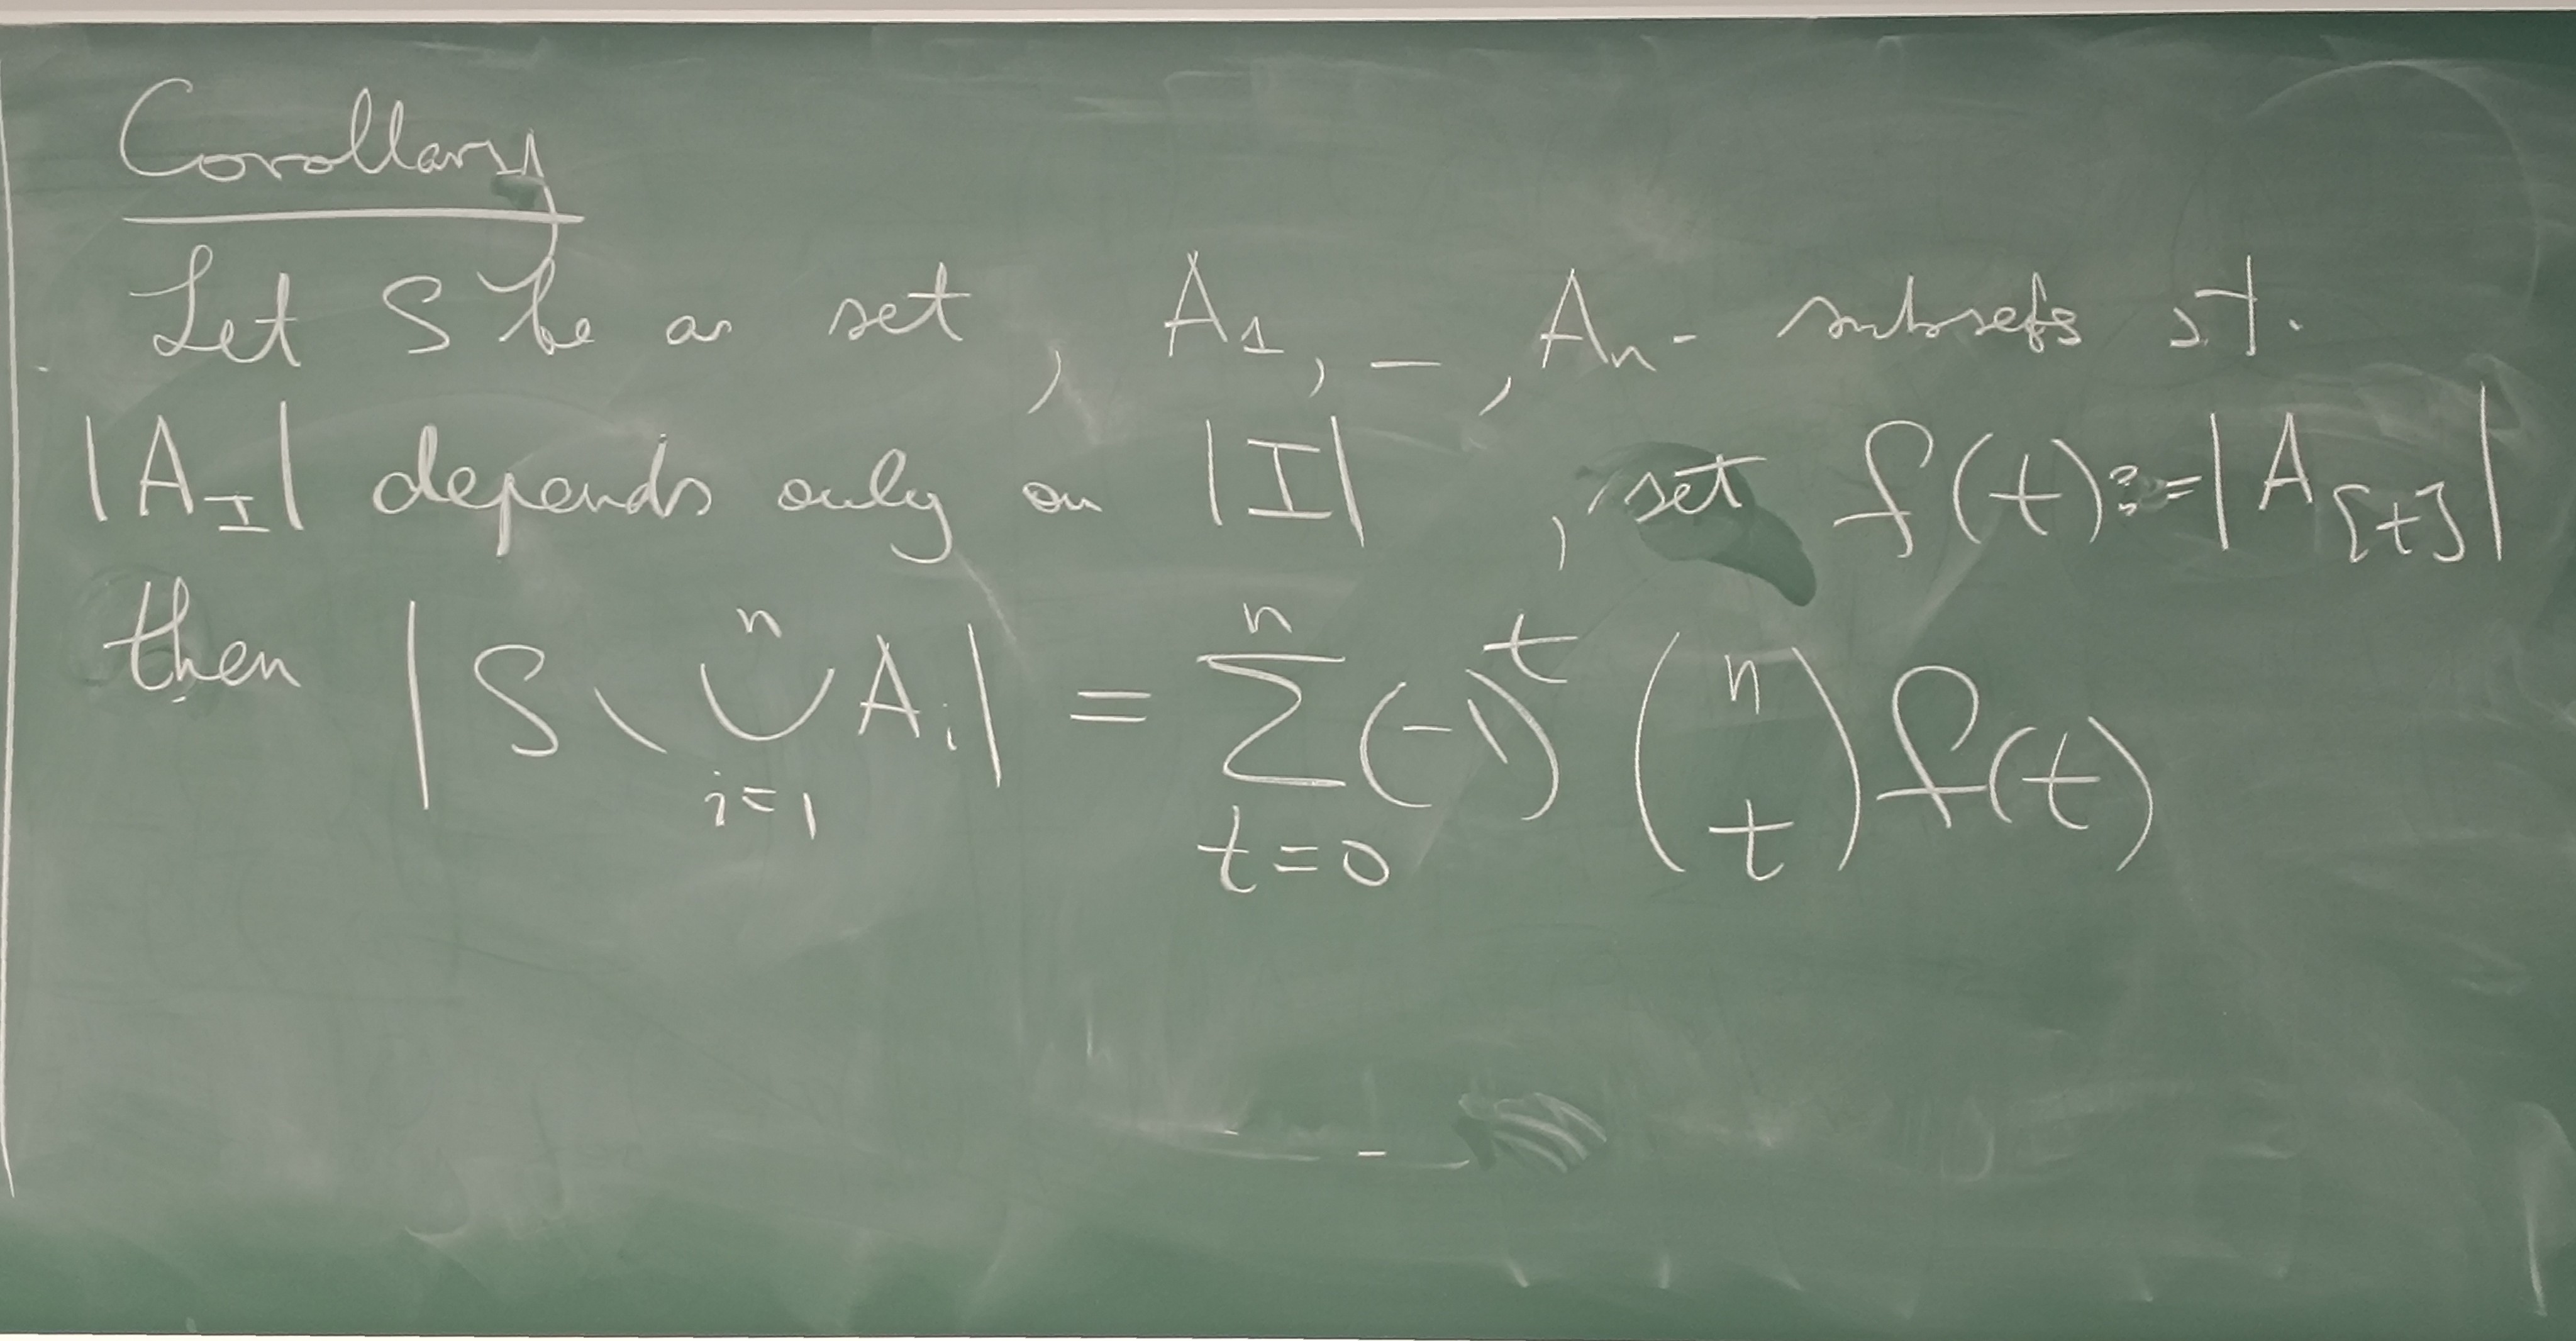 Corollary
Let S be a set, A₁, –, Aₙ - subsets s.t.
|A_I| depends only on |I|, set f(t) := |A_[t]|
then |S \ ⋃_{i=1}^{n} A_i| = ∑_{t=0}^{n} (-1)^t \binom{n}{t} f(t)